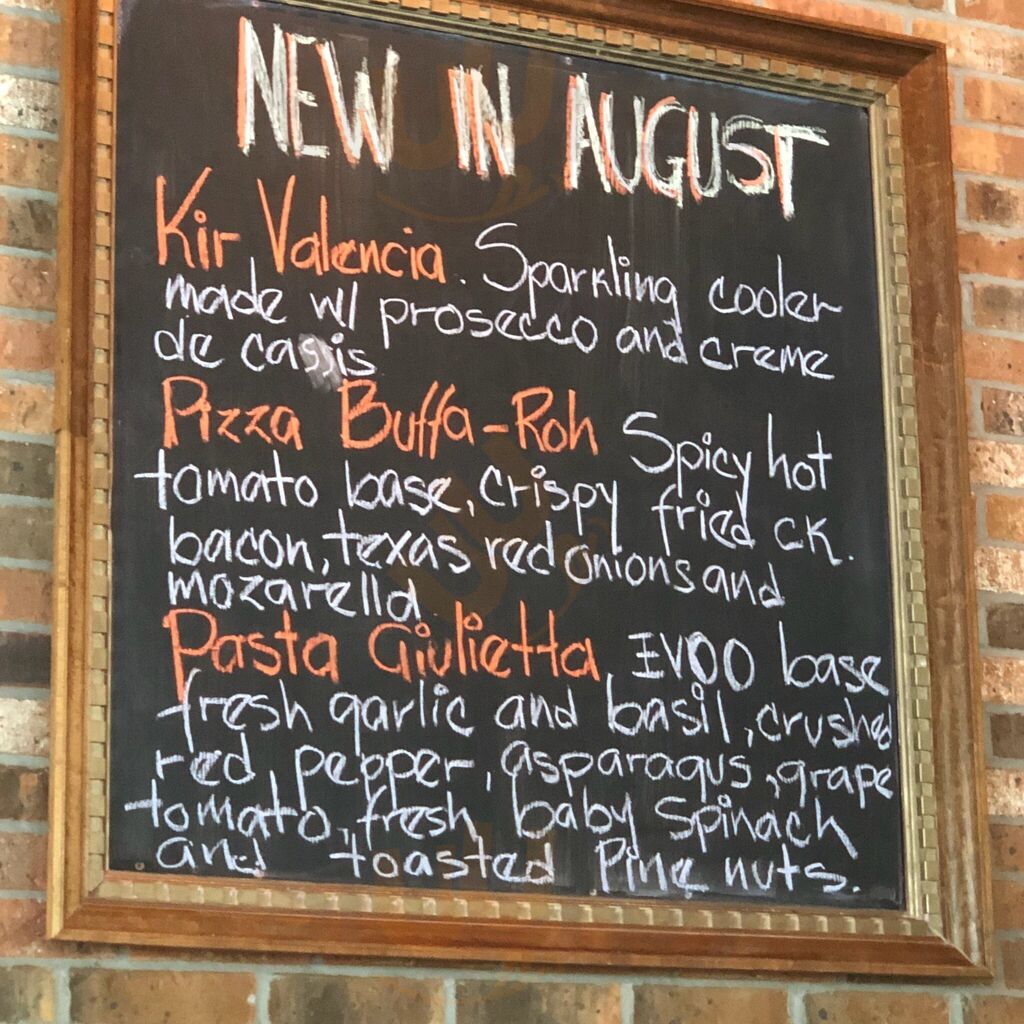 NEW IN AUGUST
Kir Valencia. Sparkling cooler
made w/ prosecco and creme
de cassis
Pizza Buffa-Roh Spicy hot
tomato base, crispy fried ck.
bacon, texas red onions and
mozarella
Pasta Giulietta EVOO base
fresh garlic and basil, crushed
red, pepper, asparagus, grape
tomato, fresh baby Spinach
and toasted Pine nuts.